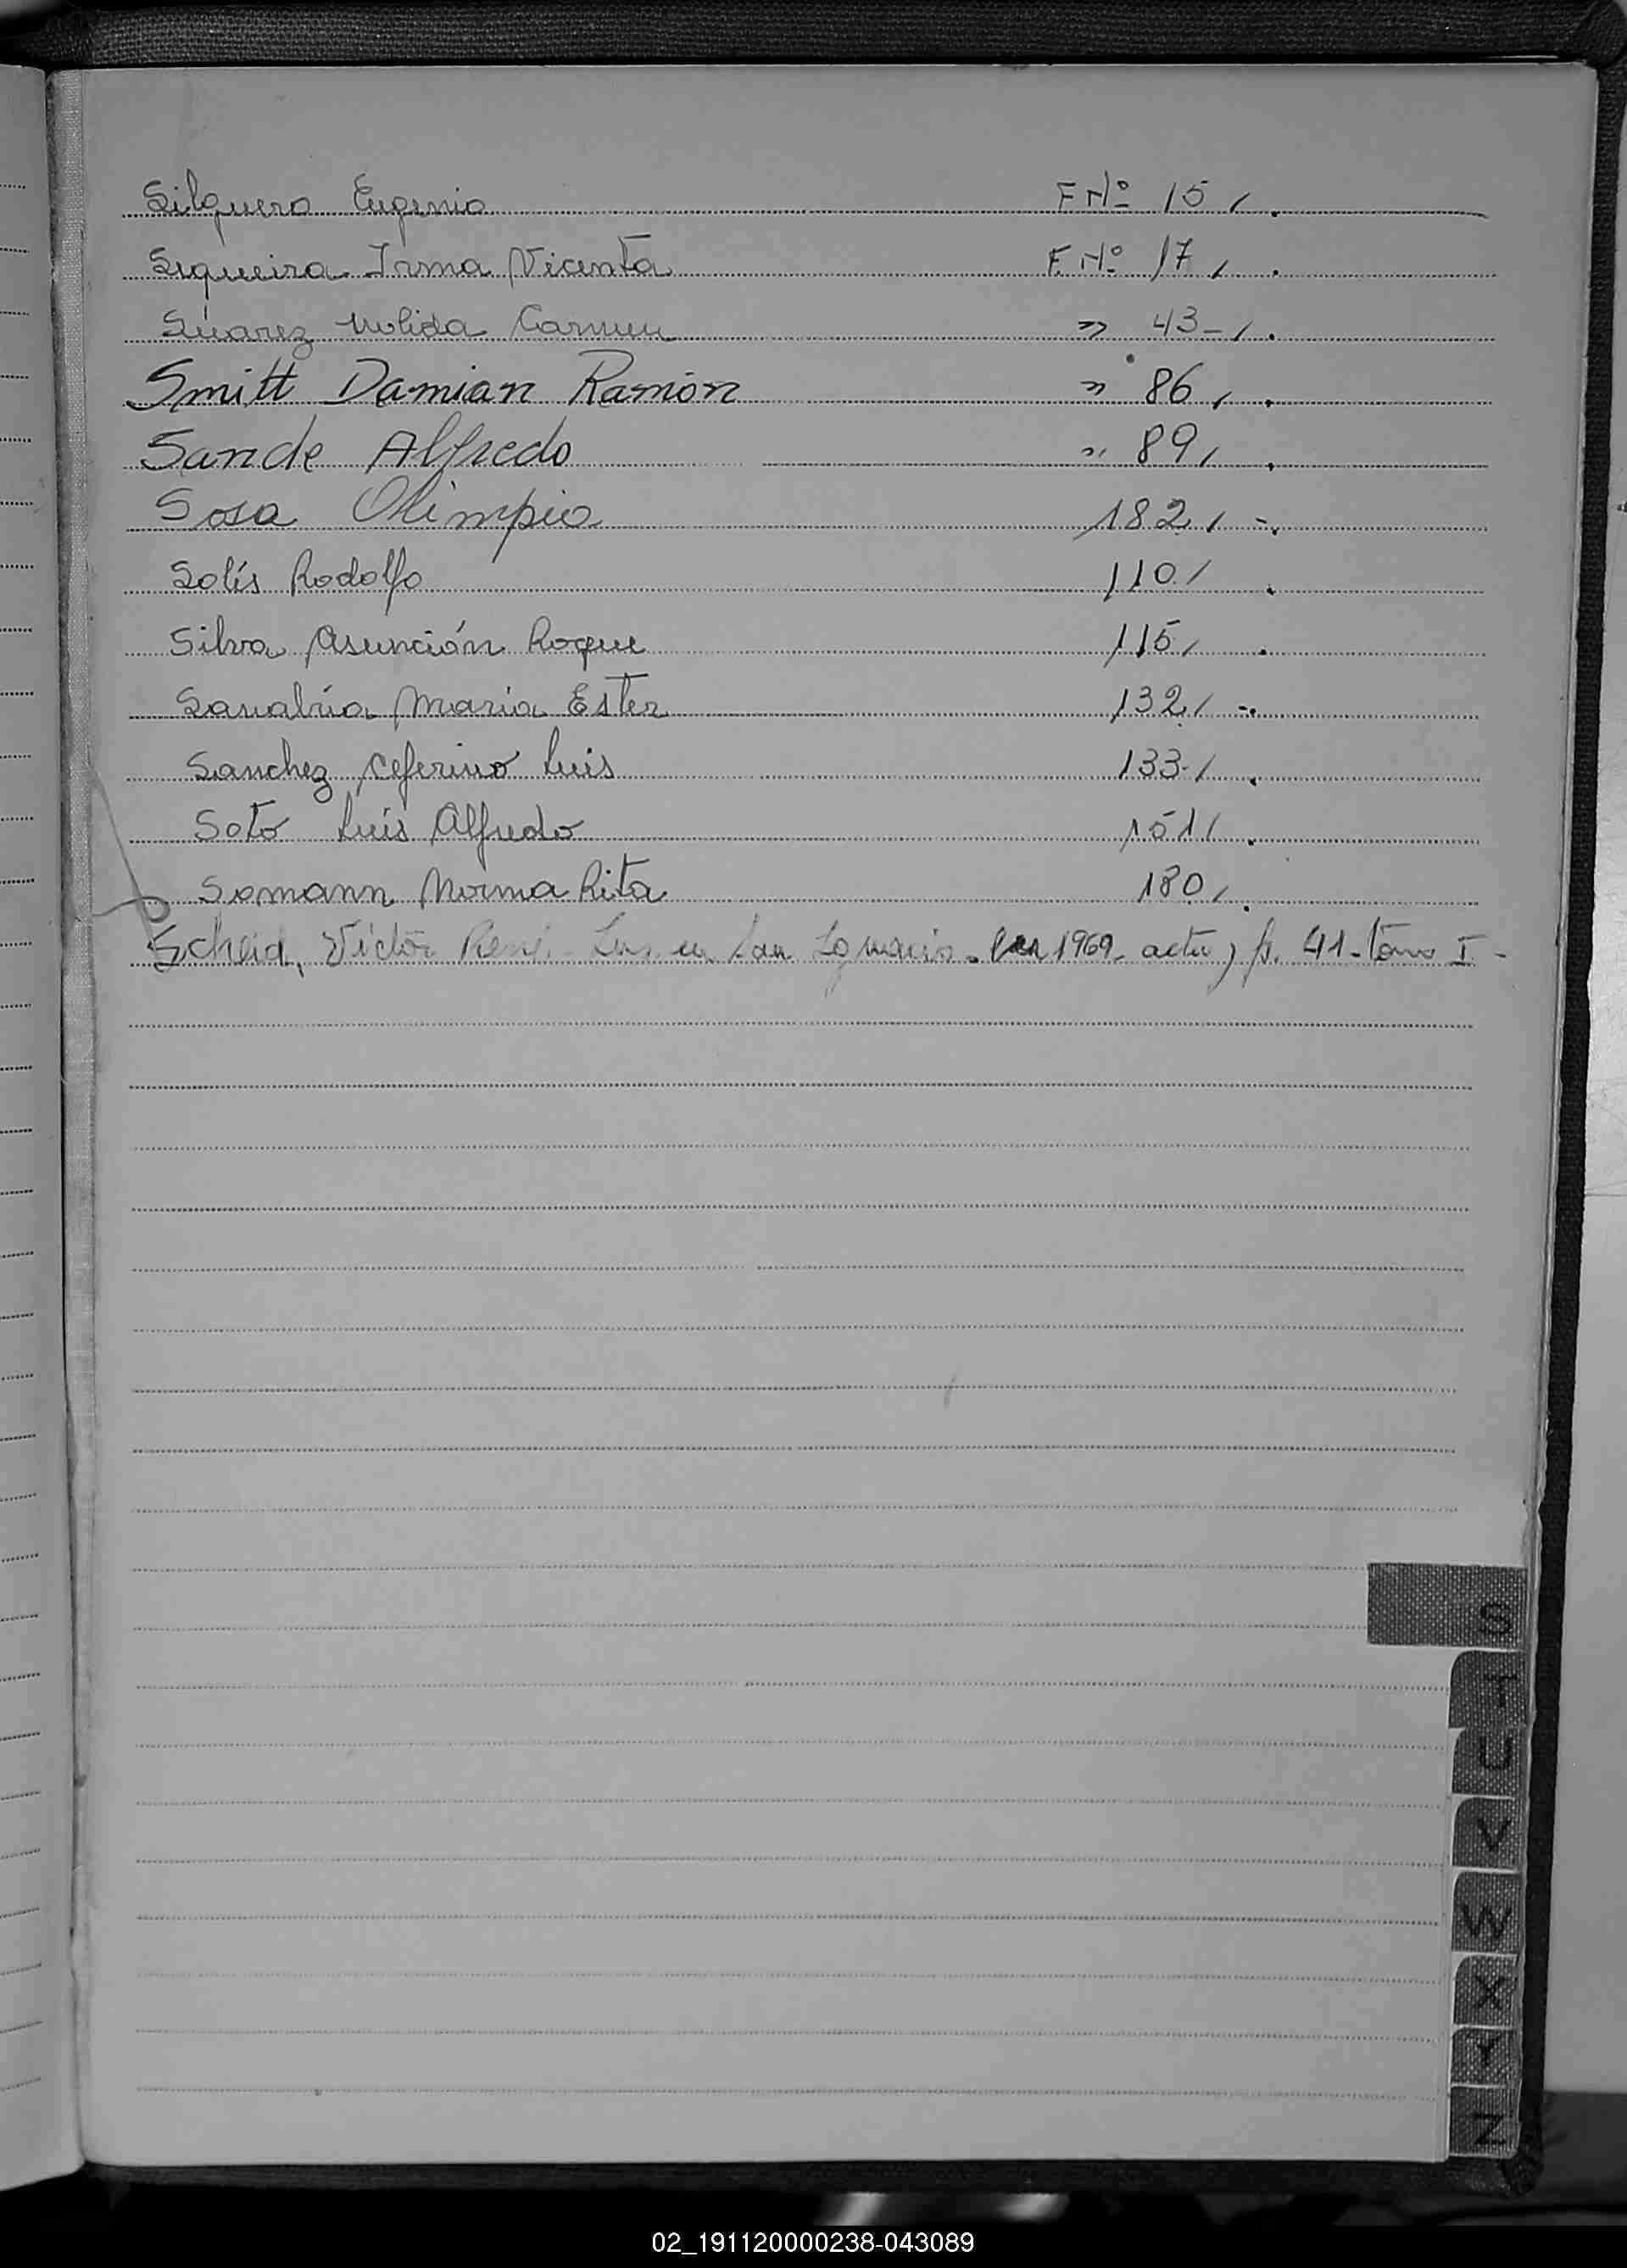 Silguero Eugenio F Nº 15 / .
Sequeira Irma Vicenta F Nº 17 / .
Súarez Nolida Carmen " 43 - / .
Smitt Damian Ramón " 86 / .
Sande Alfredo " 89 / .
Sosa Olimpio 182 / - .
Solís Rodolfo 110 / .
Silva Asunción Roque 115 / .
Sanabria Maria Ester 132 / - .
Sanchez Ceferino Luis 133 - / .
Soto Luis Alfredo 151 / .
Somann Norma Rita 180 / .
Scheid, Victor René. en San Ignacio - en 1969 - acta 7 f. 41 - tomo I -
S
T
U
V
W
X
Y
Z
02_191120000238-043089